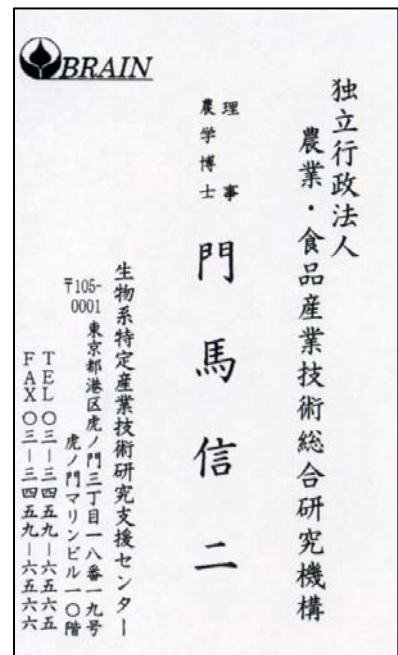 BRAIN
独立行政法人
農業・食品産業技術総合研究機構
理事
農学博士
門馬信二
生物系特定産業技術研究支援センター
〒105-0001
東京都港区虎ノ門三丁目一八番一九号
虎ノ門マリンビル一〇階
TEL 〇三-三四五九-六五六五
FAX 〇三-三四五九-六五六六